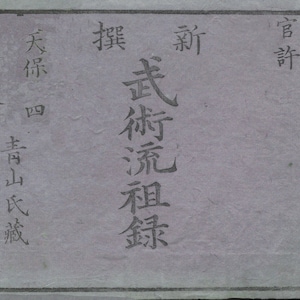 官許
新撰
武術流祖録
天保四
青山氏藏